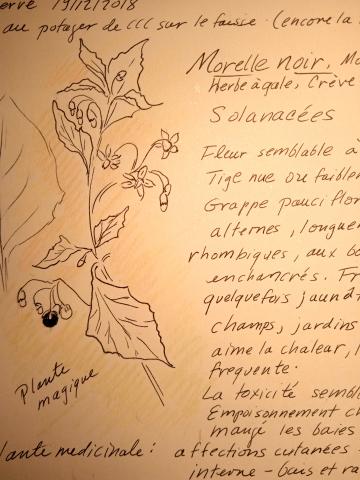 erve 19/12/2018
au potager de CCC sur le faîsse. (encore la
Morelle noir, Mo
Herbe à gale, Crève
Solanacées
Fleur semblable à
Tige nue ou faiblem
Grappe pauciflor
alternes, longuem
rhombiques, aux bo
enchancrés. Fr
quelquefois jaund
champs, jardins
aime la chaleur, l
frequente.
La toxicité sembl
Empoisonnement ch
mangé les baies
Plante magique
plante medicinale: affections cutanées -
interne - baies et ra